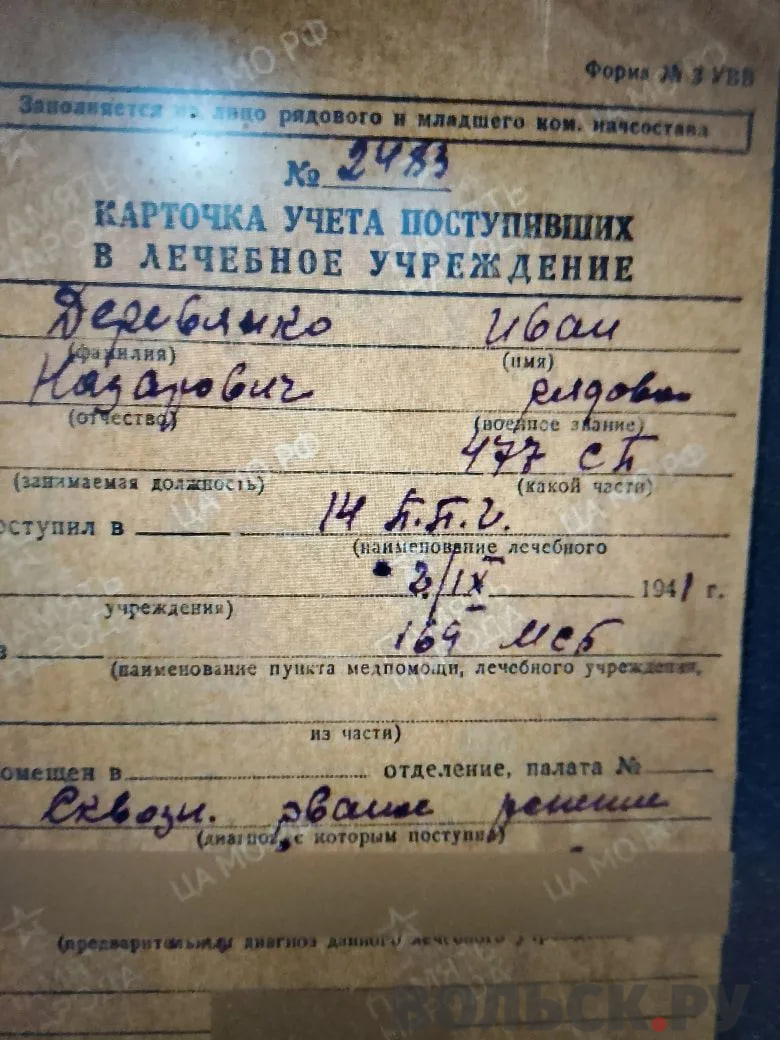 Форма № 3 УВВ
Заполняется на лицо рядового и младшего ком. начсостава
№ 2483
КАРТОЧКА УЧЕТА ПОСТУПИВШИХ
В ЛЕЧЕБНОЕ УЧРЕЖДЕНИЕ
Деревянко Иван
(фамилия) (имя)
Назарович рядовой
(отчество) (военное звание)
477 СП
(занимаемая должность) (какой части)
оступил в 14 П.П.Г.
(наименование лечебного
2/IX 1941 г.
учреждения)
в 169 МСБ
(наименование пункта медпомощи, лечебного учреждения,
из части)
омещен в отделение, палата №
Сквозн. рваное ранение
(диагноз, с которым поступил)
(предварительный диагноз данного лечебного учреждения)
ВОЛЬСК.РУ
ПАМЯТЬ НАРОДА
ЦА МО РФ